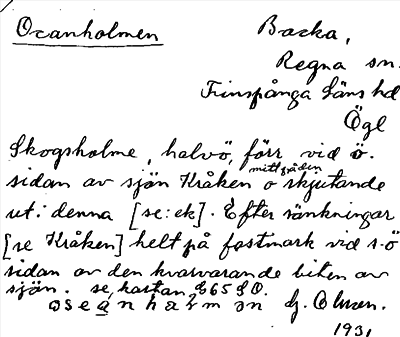 Oxanholmen
Backa,
Regna sn.
Finspånga Läns hd
Ögl
Skogsholme, halvö, förr vid ö.
mitt på den
sidan av sjön Kråken o skjutande
ut i denna [se: ek]. Efter sänkningar
[se Kråken] helt på fastmark vid s.ö
sidan av den kvarvarande biten av
sjön. se, kartan, G65 SO.
G. Olsson.
1931